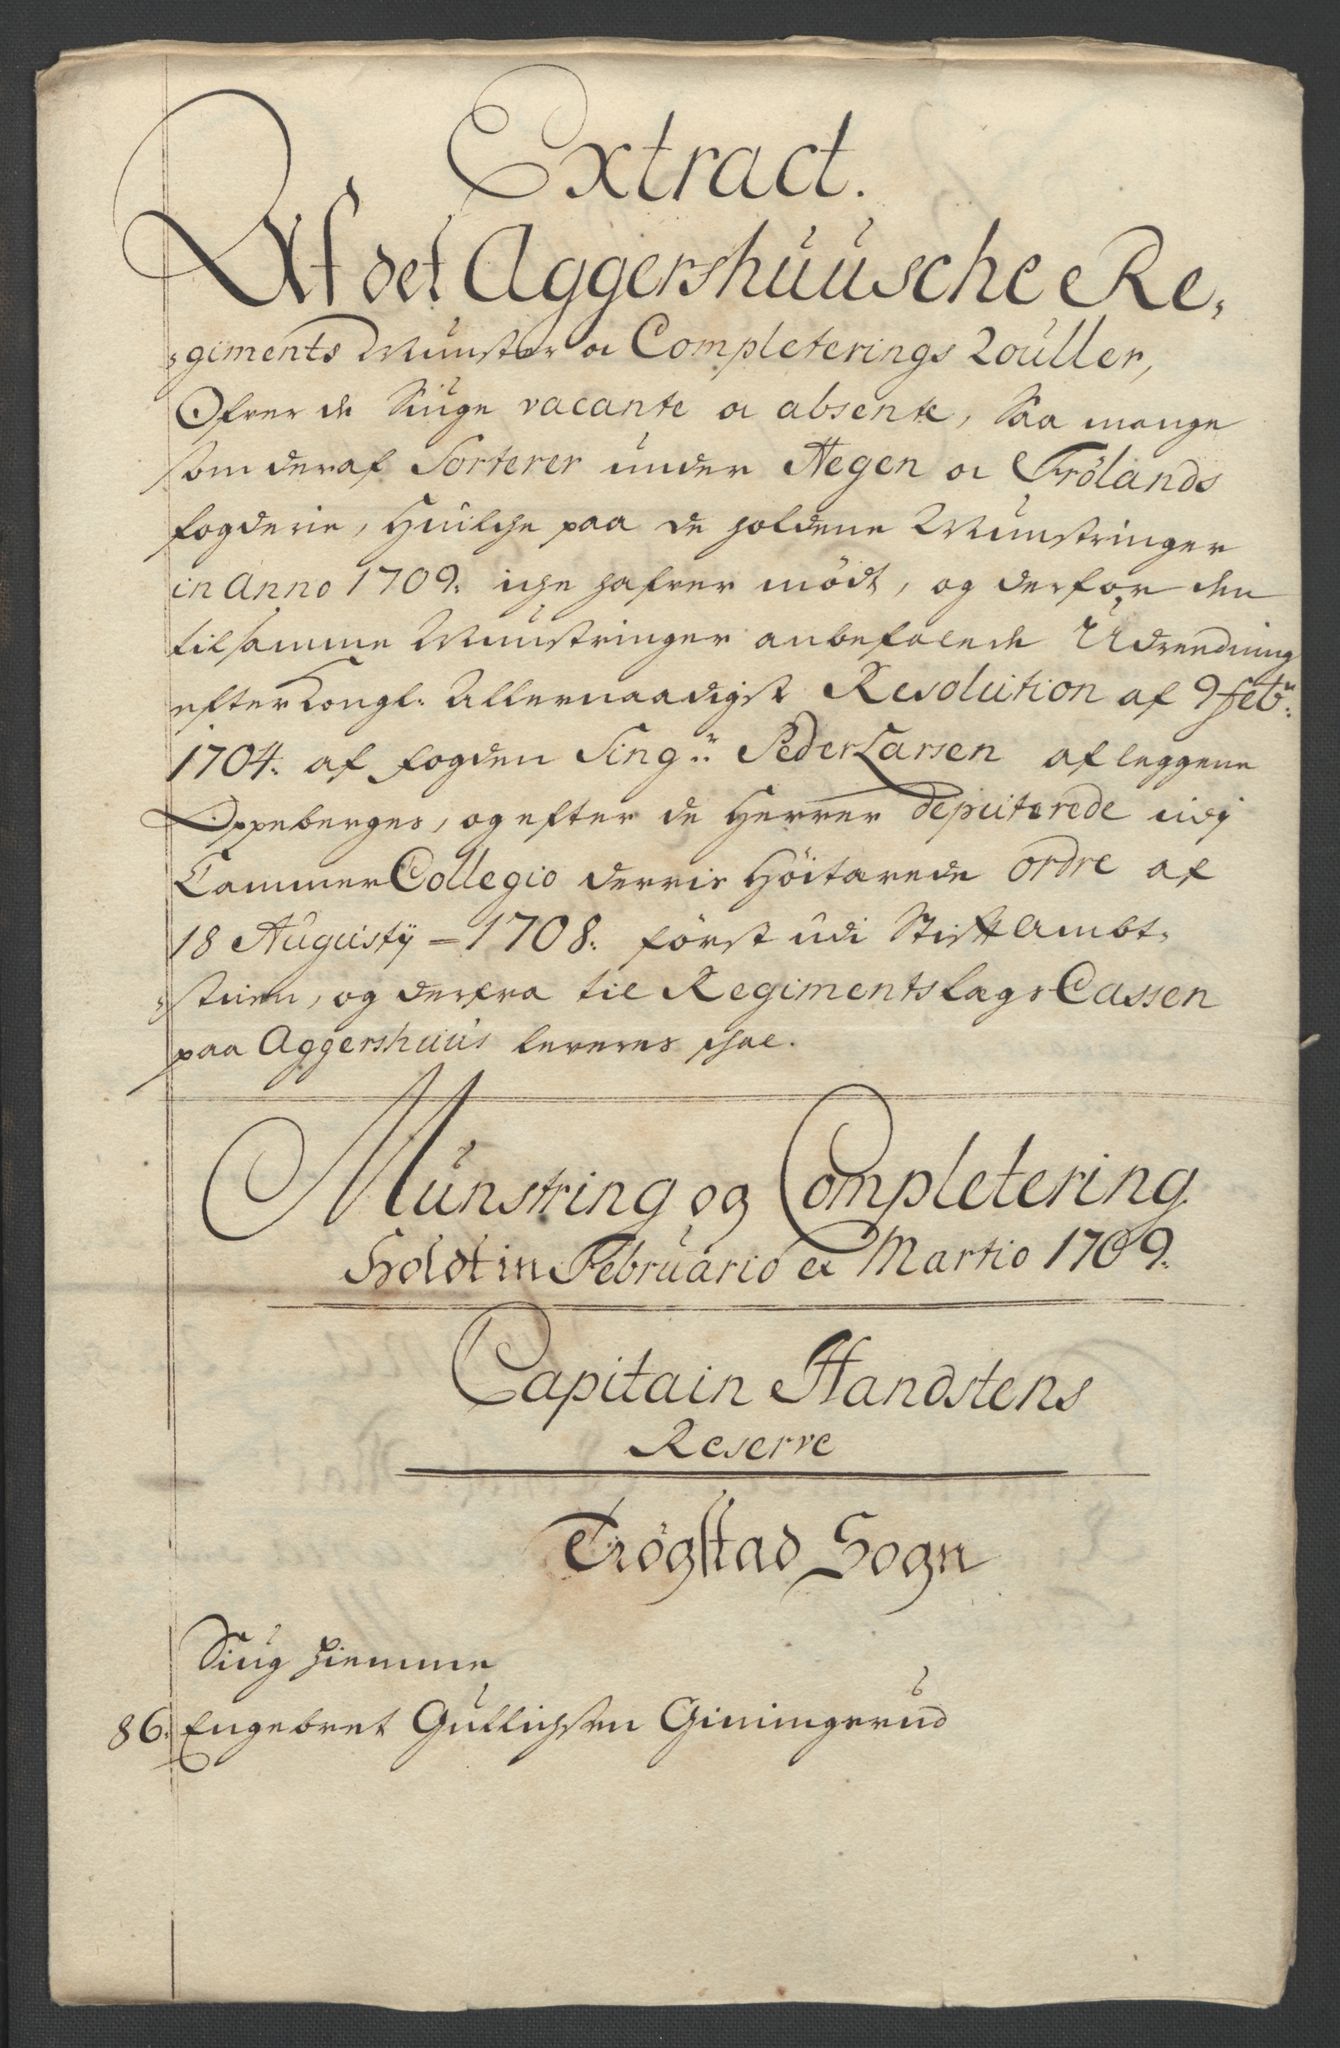 Extract.
Af det Aggershuusche Re,
,giments Munster og Completerings Roller,
Ofver de Siuge vacante og absente, saa mange
som deraf Sorterer under Hegen og Frølands
fogderie, Huilche paa de holdene Munstringer
in Anno 1709: iche hafver mødt, og derfor den
til samme Munstringer anbefalede Udreedning
efter Kongl: Allernaadigst Resolution af 9 febr:
1704: af fogden Sing:r Peder Larsen afleggene
Oppeberges, og efter de Herrer deputerede udj
Cammer Collegio derris Høitærede ordre af
18 Augustij – 1708: først udi Stiftambt,
,stuen, og derfra til Regiments lægs Cassen
paa Aggershuus leveres skal.
Munstring og Completering
Holdt in Februario et Martio 1709:
Capitain Handstens
Reserve
Trøgstad Sogn
Siug hiemme
86: Engebret Gullichsen Gimingsrud